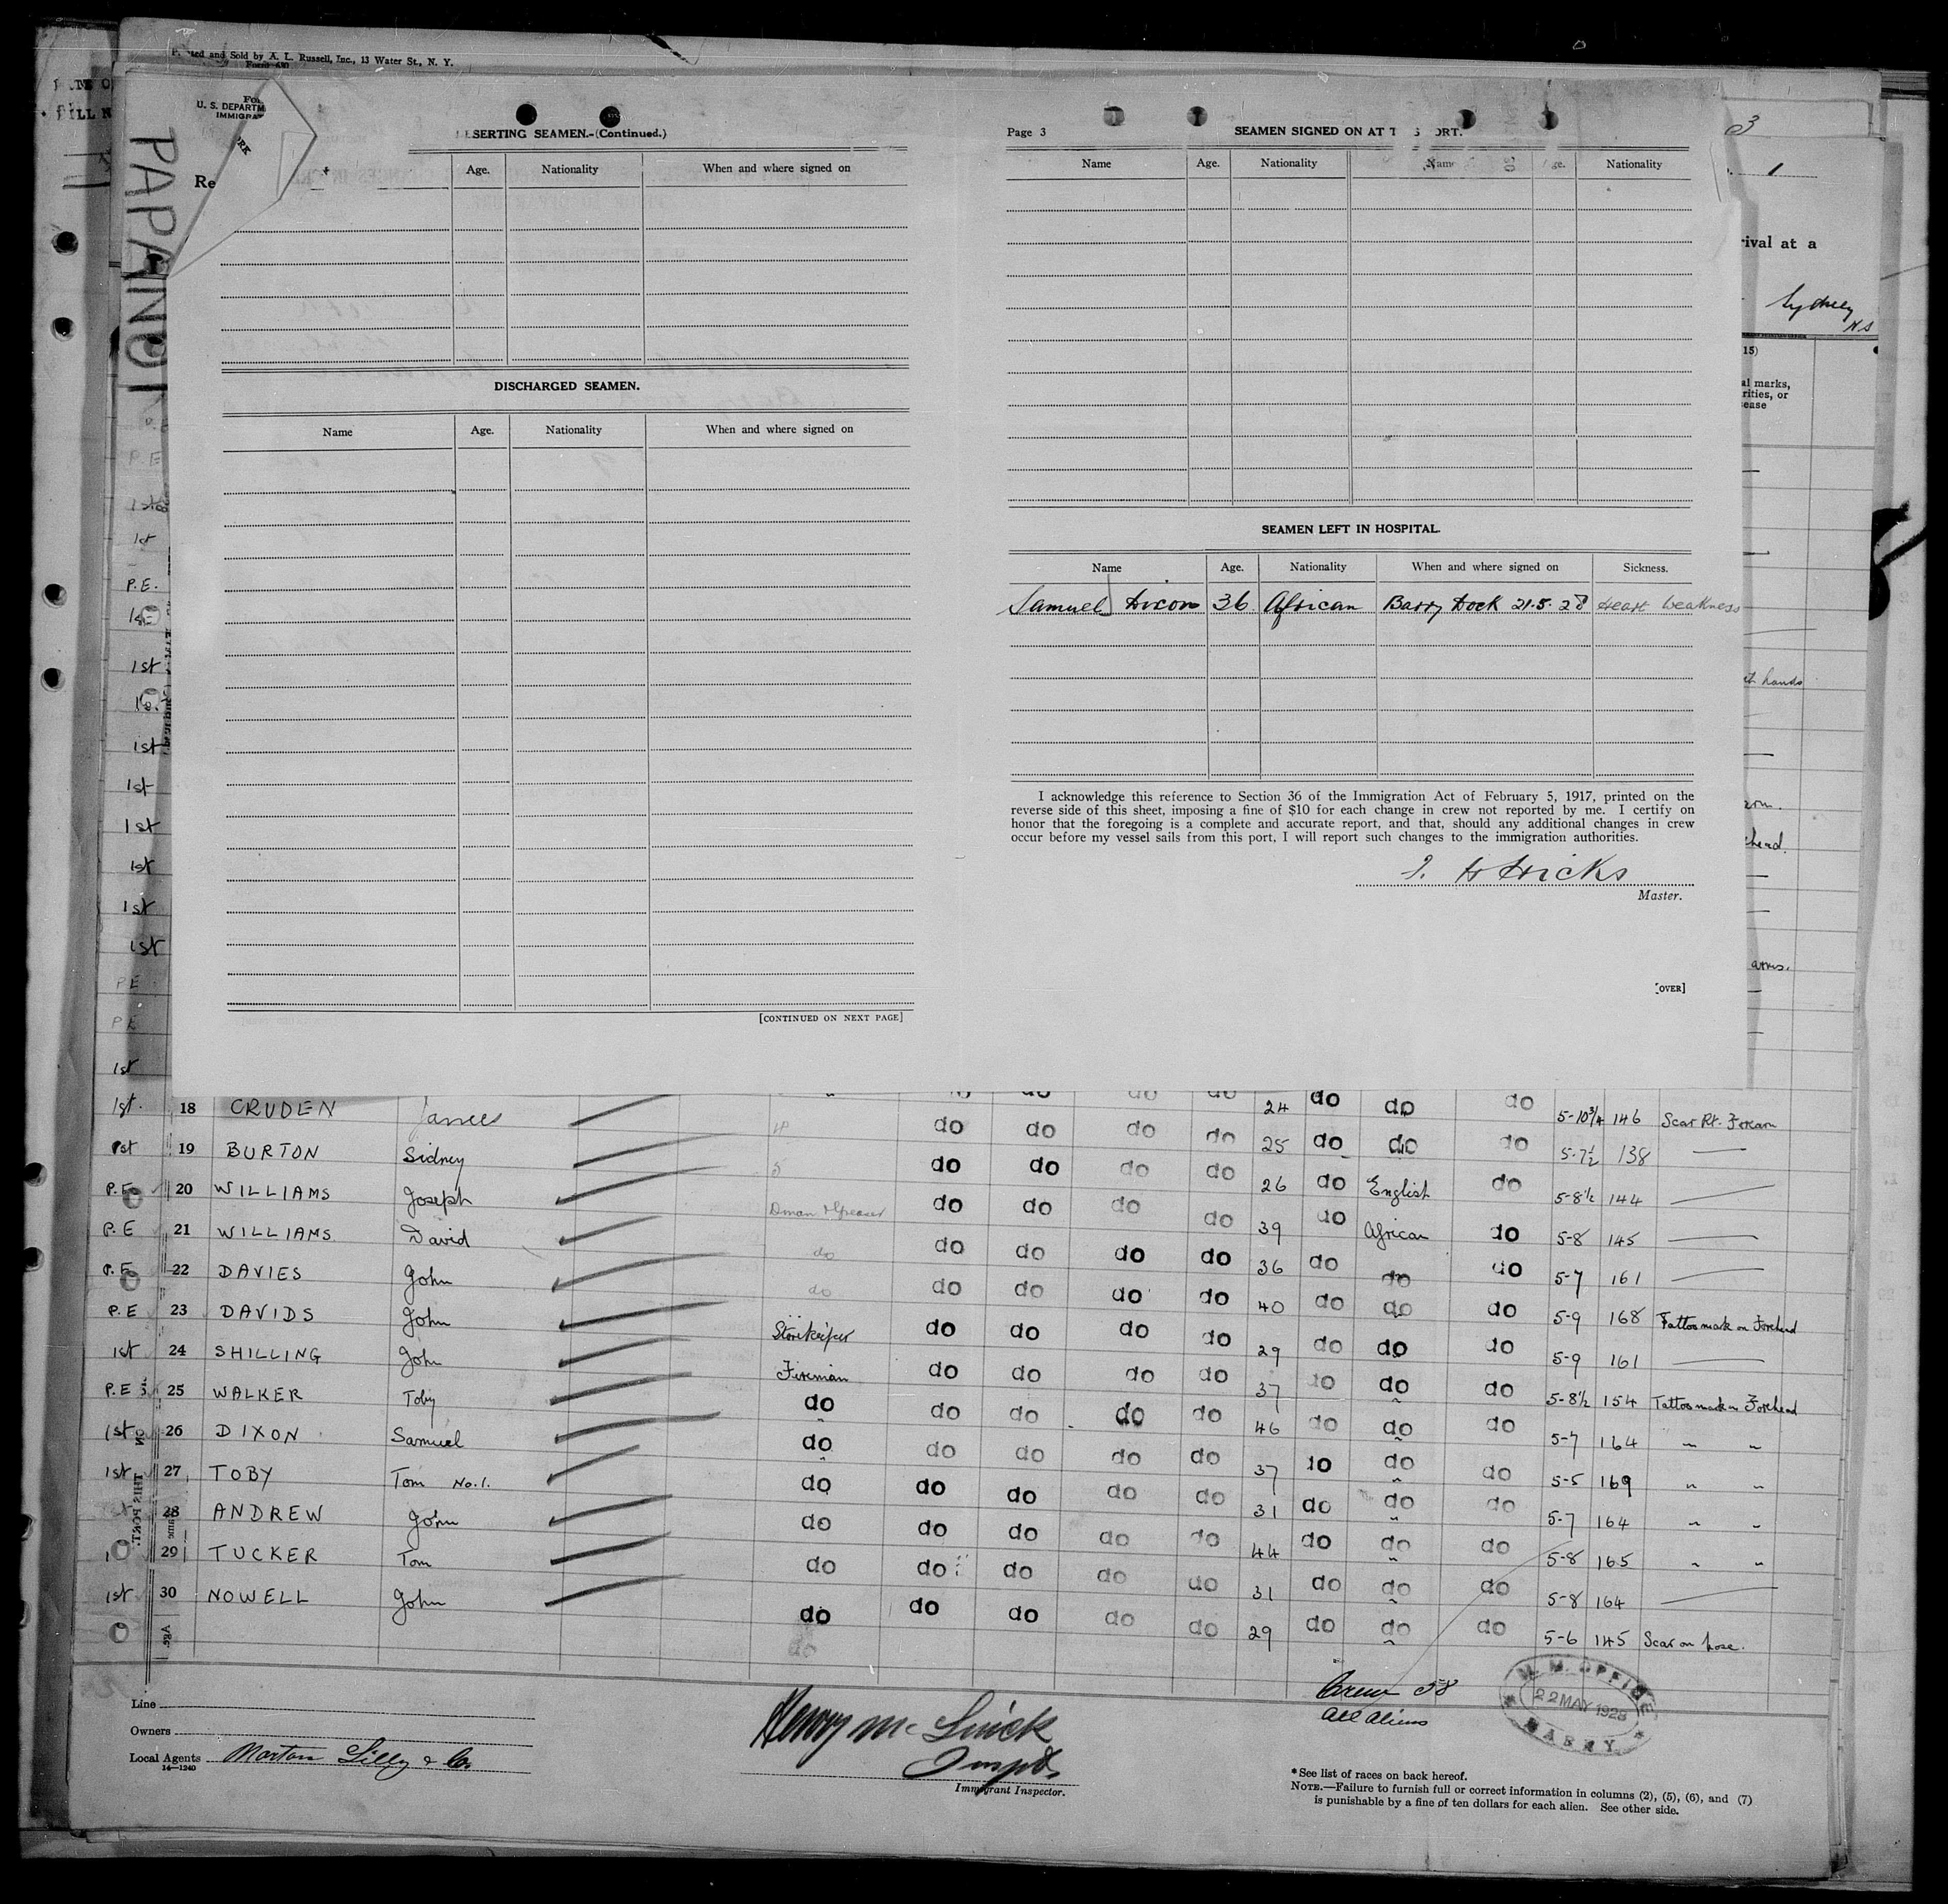 Printed and Sold by A. L. Russell, Inc., 13 Water St., N. Y.
Form 630
U. S. DEPARTM
IMMIGRA
Re
DESERTING SEAMEN.-(Continued.)
Age. Nationality When and where signed on
DISCHARGED SEAMEN.
Name Age. Nationality When and where signed on
[CONTINUED ON NEXT PAGE]
Page 3 SEAMEN SIGNED ON AT THIS PORT.
Name Age. Nationality Name Age. Nationality
SEAMEN LEFT IN HOSPITAL.
Name Age. Nationality When and where signed on Sickness.
Samuel Dixon 36 African Barry Dock 21.5.28 Heart Weakness
I acknowledge this reference to Section 36 of the Immigration Act of February 5, 1917, printed on the
reverse side of this sheet, imposing a fine of $10 for each change in crew not reported by me. I certify on
honor that the foregoing is a complete and accurate report, and that, should any additional changes in crew
occur before my vessel sails from this port, I will report such changes to the immigration authorities.
Hicks
Master.
[OVER]
rival at a
Sydney
N.S
15)
al marks,
rities, or
ease
hands
head.
arms.
1st 18 CRUDEN James do do do do 24 do do do 5-10¾ 146 Scar Rt. Forearm
1st 19 BURTON Sidney do do do do 25 do do do 5-7½ 138
P.E 20 WILLIAMS Joseph do do do do 26 do English do 5-8½ 144
P.E 21 WILLIAMS David Dman & Greaser do do do do 39 do African do 5-8 145
P.E 22 DAVIES John do do do do do 36 do do do 5-7 161
P.E 23 DAVIDS John do do do do do 40 do do do 5-9 168 Tattoo mark on Forehead
1st 24 SHILLING John Storekeeper do do do do 29 do do do 5-9 161
P.E 25 WALKER Toby Fireman do do do do 37 do do do 5-8½ 154 Tattoo mark on Forehead
1st 26 DIXON Samuel do do do do do 46 do do do 5-7 164 " "
1st 27 TOBY Tom No.1. do do do do do 37 do do do 5-5 169 " "
1st 28 ANDREW John do do do do do 31 do do do 5-7 164 " "
29 TUCKER Tom do do do do do 44 do do do 5-8 165 " "
1st 30 NOWELL John do do do do do 31 do do do 5-8 164
do do do do do 29 do do do 5-6 145 Scar on nose.
do
Line
Owners
Local Agents Morton Lilly & Co.
14—1240
Immigrant Inspector.
Crew 58
All Aliens
M. M. OFFICE
22 MAY 1928
BARRY
* See list of races on back hereof.
NOTE.—Failure to furnish full or correct information in columns (2), (5), (6), and (7)
is punishable by a fine of ten dollars for each alien. See other side.